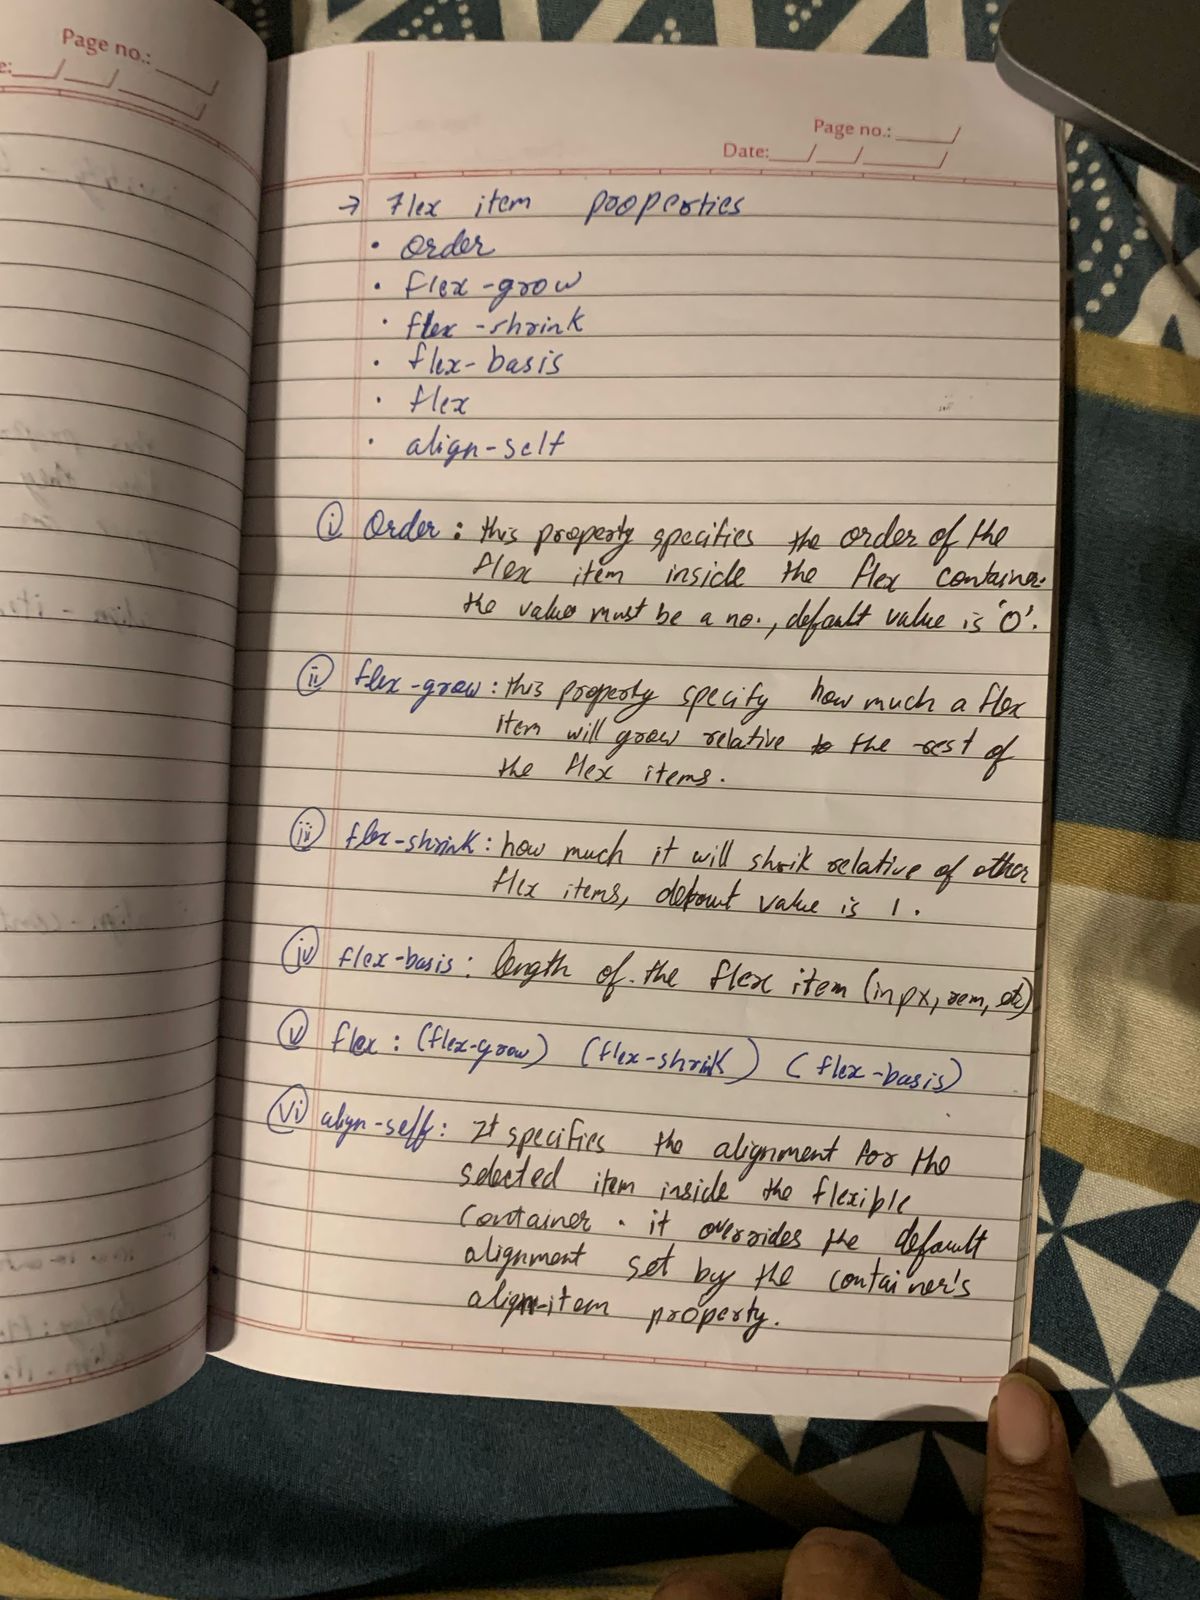 Page no.:
Page no.:
Date:
→ Flex item properties
• order
• flex-grow
• flex-shrink
• flex-basis
• flex
• align-self
(i) Order : this property specifies the order of the
flex item inside the flex container.
the value must be a no., default value is '0'.
(ii) flex-grow : this property specify how much a flex
item will grow relative to the rest of
the flex items.
(iii) flex-shrink : how much it will shrik relative of other
flex items, default value is 1.
(iv) flex-basis : length of the flex item (in px, rem, etc)
(v) flex : (flex-grow) (flex-shrink) (flex-basis)
(vi) align-self : It specifies the alignment for the
selected item inside the flexible
container. it overrides the default
alignment set by the container's
align-item property.